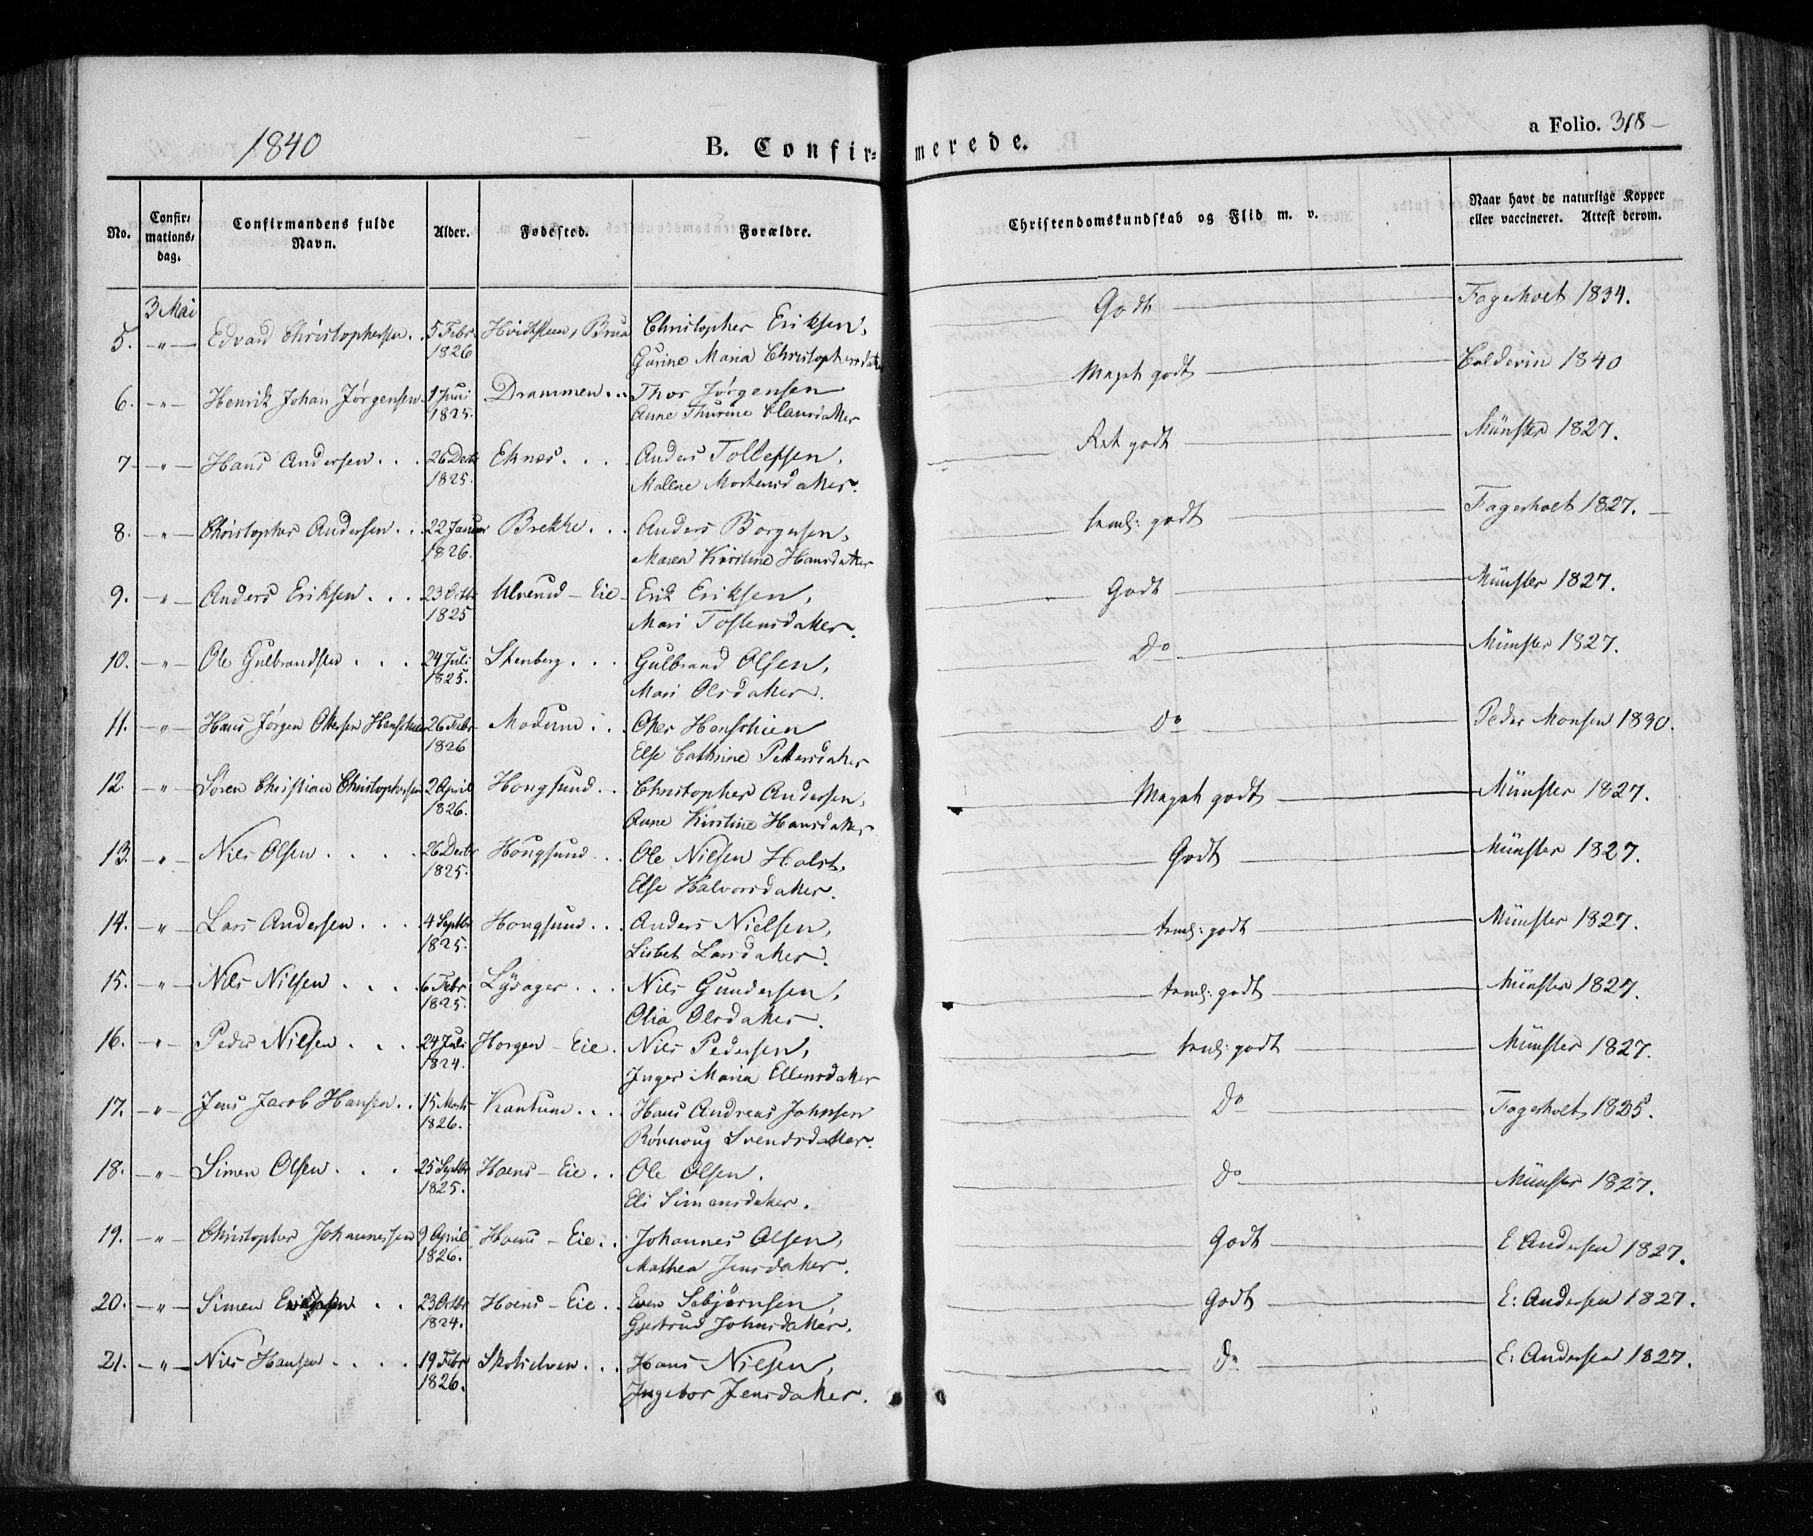 1840 B. Confirmerede. a Folio. 318
No. Confirmationsdag. Confirmandens fulde Navn. Alder. Fødested. Forældre. Christendomskundskab og Flid m. v. Naar havt de naturlige Kopper eller vaccineret. Attest derom.
3 Mai
5. „ Edvard Christophersen 5 Febr. 1826 Hvidsteen, Brua Christopher Eriksen, Godt Fagerholt 1834.
Gurine Maria Christophersdatter
6. „ Henrik Johan Jørgensen 1 Juni 1825. Drammen Thor Jørgensen Meget godt Caldevin 1840
Anne Thurine Clausdatter
7 „ Hans Andersen 26 Decbr 1825. Eknes Anders Tollefsen, Ret godt Münster 1827.
Mallene Mortensdatter.
8. „ Christopher Andersen 22 Januar 1826. Brekke Anders Borgersen, temel: godt Fagerholt 1827.
Maren Kirstine Hansdatter
9. „ Anders Eriksen 23 Octb 1825 Ulverud-Eie Erik Eriksen, Godt Münster 1827.
Mari Tostensdatter.
10. „ Ole Gulbrandsen 24 Juli 1825. Stenberg Gulbrand Olsen, Do Münster 1827.
Mari Olsdatter.
11. „ Hans Jørgen Okersen Henschien 26 Febr 1826 Modum Oker Henschien Do Peder Monsen 1830.
Else Cathrine Pettersdatter
12. „ Søren Christian Christophersen 2 April 1826. Hongsund Christopher Andersen, Meget godt Münster 1827.
Anne Kirstine Hansdatter
13. „ Nils Olsen 26 Decbr 1825. Hongsund Ole Nilsen Holst, Godt Münster 1827.
Else Halvorsdatter.
14. „ Lars Andersen 4 Septbr 1825. Hongsund Anders Nielsen, temel: godt Münster 1827.
Lisbet Larsdatter.
15. „ Nils Nilsen 6 Febr 1825. Lysager Nils Gundersen, temel: godt Münster 1827.
Olia Olsdatter.
16. „ Peder Nilsen 24 Juli 1824. Horgen-Eie Nils Pedersen, temel: godt Münster 1827.
Inger Maria Ellensdatter
17. „ Jens Jacob Hansen 15 Marts 1826. Krantum Hans Andreas Johnsen Do Fagerholt 1835.
Rønnoug Svendsdatter.
18. „ Simen Olsen 25 Septbr 1825. Hoens-Eie Ole Olsen. Do Münster 1827.
Eli Simensdatter.
19. „ Christopher Johannessen 9 April 1826. Hoens-Eie Johannes Olsen, Godt E. Andersen 1827.
Mathea Jensdatter.
20. „ Simen 23 Octbr 1824. Hoens-Eie Even Sebjørnsen, Godt E: Andersen 1827.
Gjertrud Johnsdatter.
21. „ Nils Hansen 19 Febr 1826. Skotselven Hans Nilsen, Do E: Andersen 1827.
Ingebor Jensdatter.